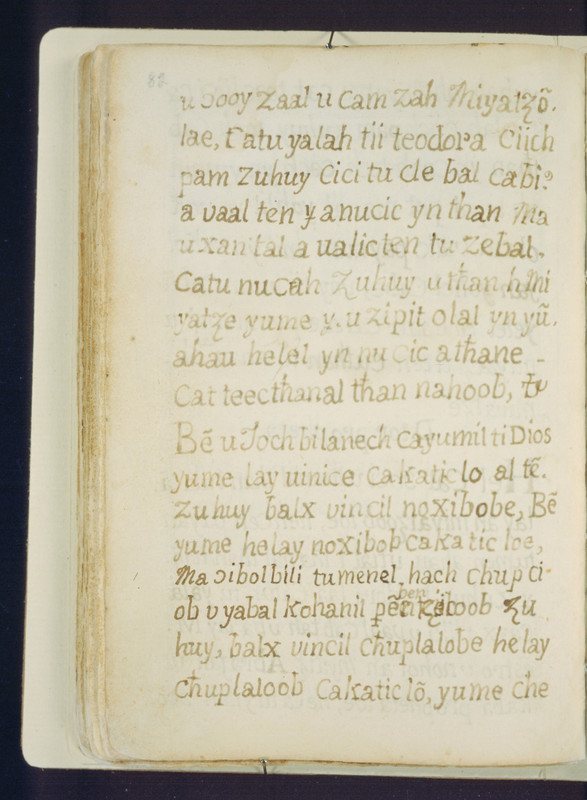 82
u ɔooy zaal u cam zah Miyatzõ.
lae, Catu yalah tii teodora Ciich
pam zuhuy Cici tu cle bal cabi?
a vaal ten y anucic yn than Ma
u xan tal a ualic ten tu zebal.
Catu nucah Zuhuy u than h Mi
yatze yume y. u zipit olal yn yũ.
ahau helel yn nu cic a thane -
Cat teec thanal than nahoob, tv
Bẽ u Joch bilanech cayumil ti Dios
yume lay uinice cakatic lo al tẽ.
zuhuy balx vincil noxibobe, Bẽ
yume helay noxibob cakatic loe,
Ma ɔibolbili tumenel hach chup ci-
ob v yabal kohanil pẽc ben oob zu
huy, balx vincil chuplalobe helay
chuplaloob cakatic lõ, yume che